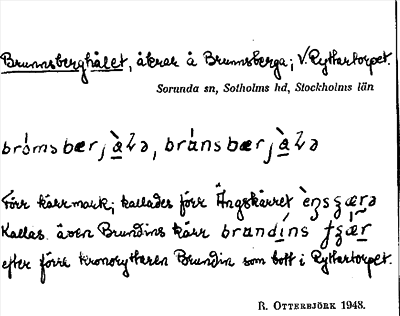 Brunnsberghålet, åkrar å Brunnsberga; V. Ryttartorpet.
Sorunda sn, Sotholms hd, Stockholms län
Förr kärrmark; kallades förr Ängskärret
Kallas även Brundins kärr
efter förre kronoryttaren Brundin som bott i Ryttartorpet.
R. Otterbjörk 1943.